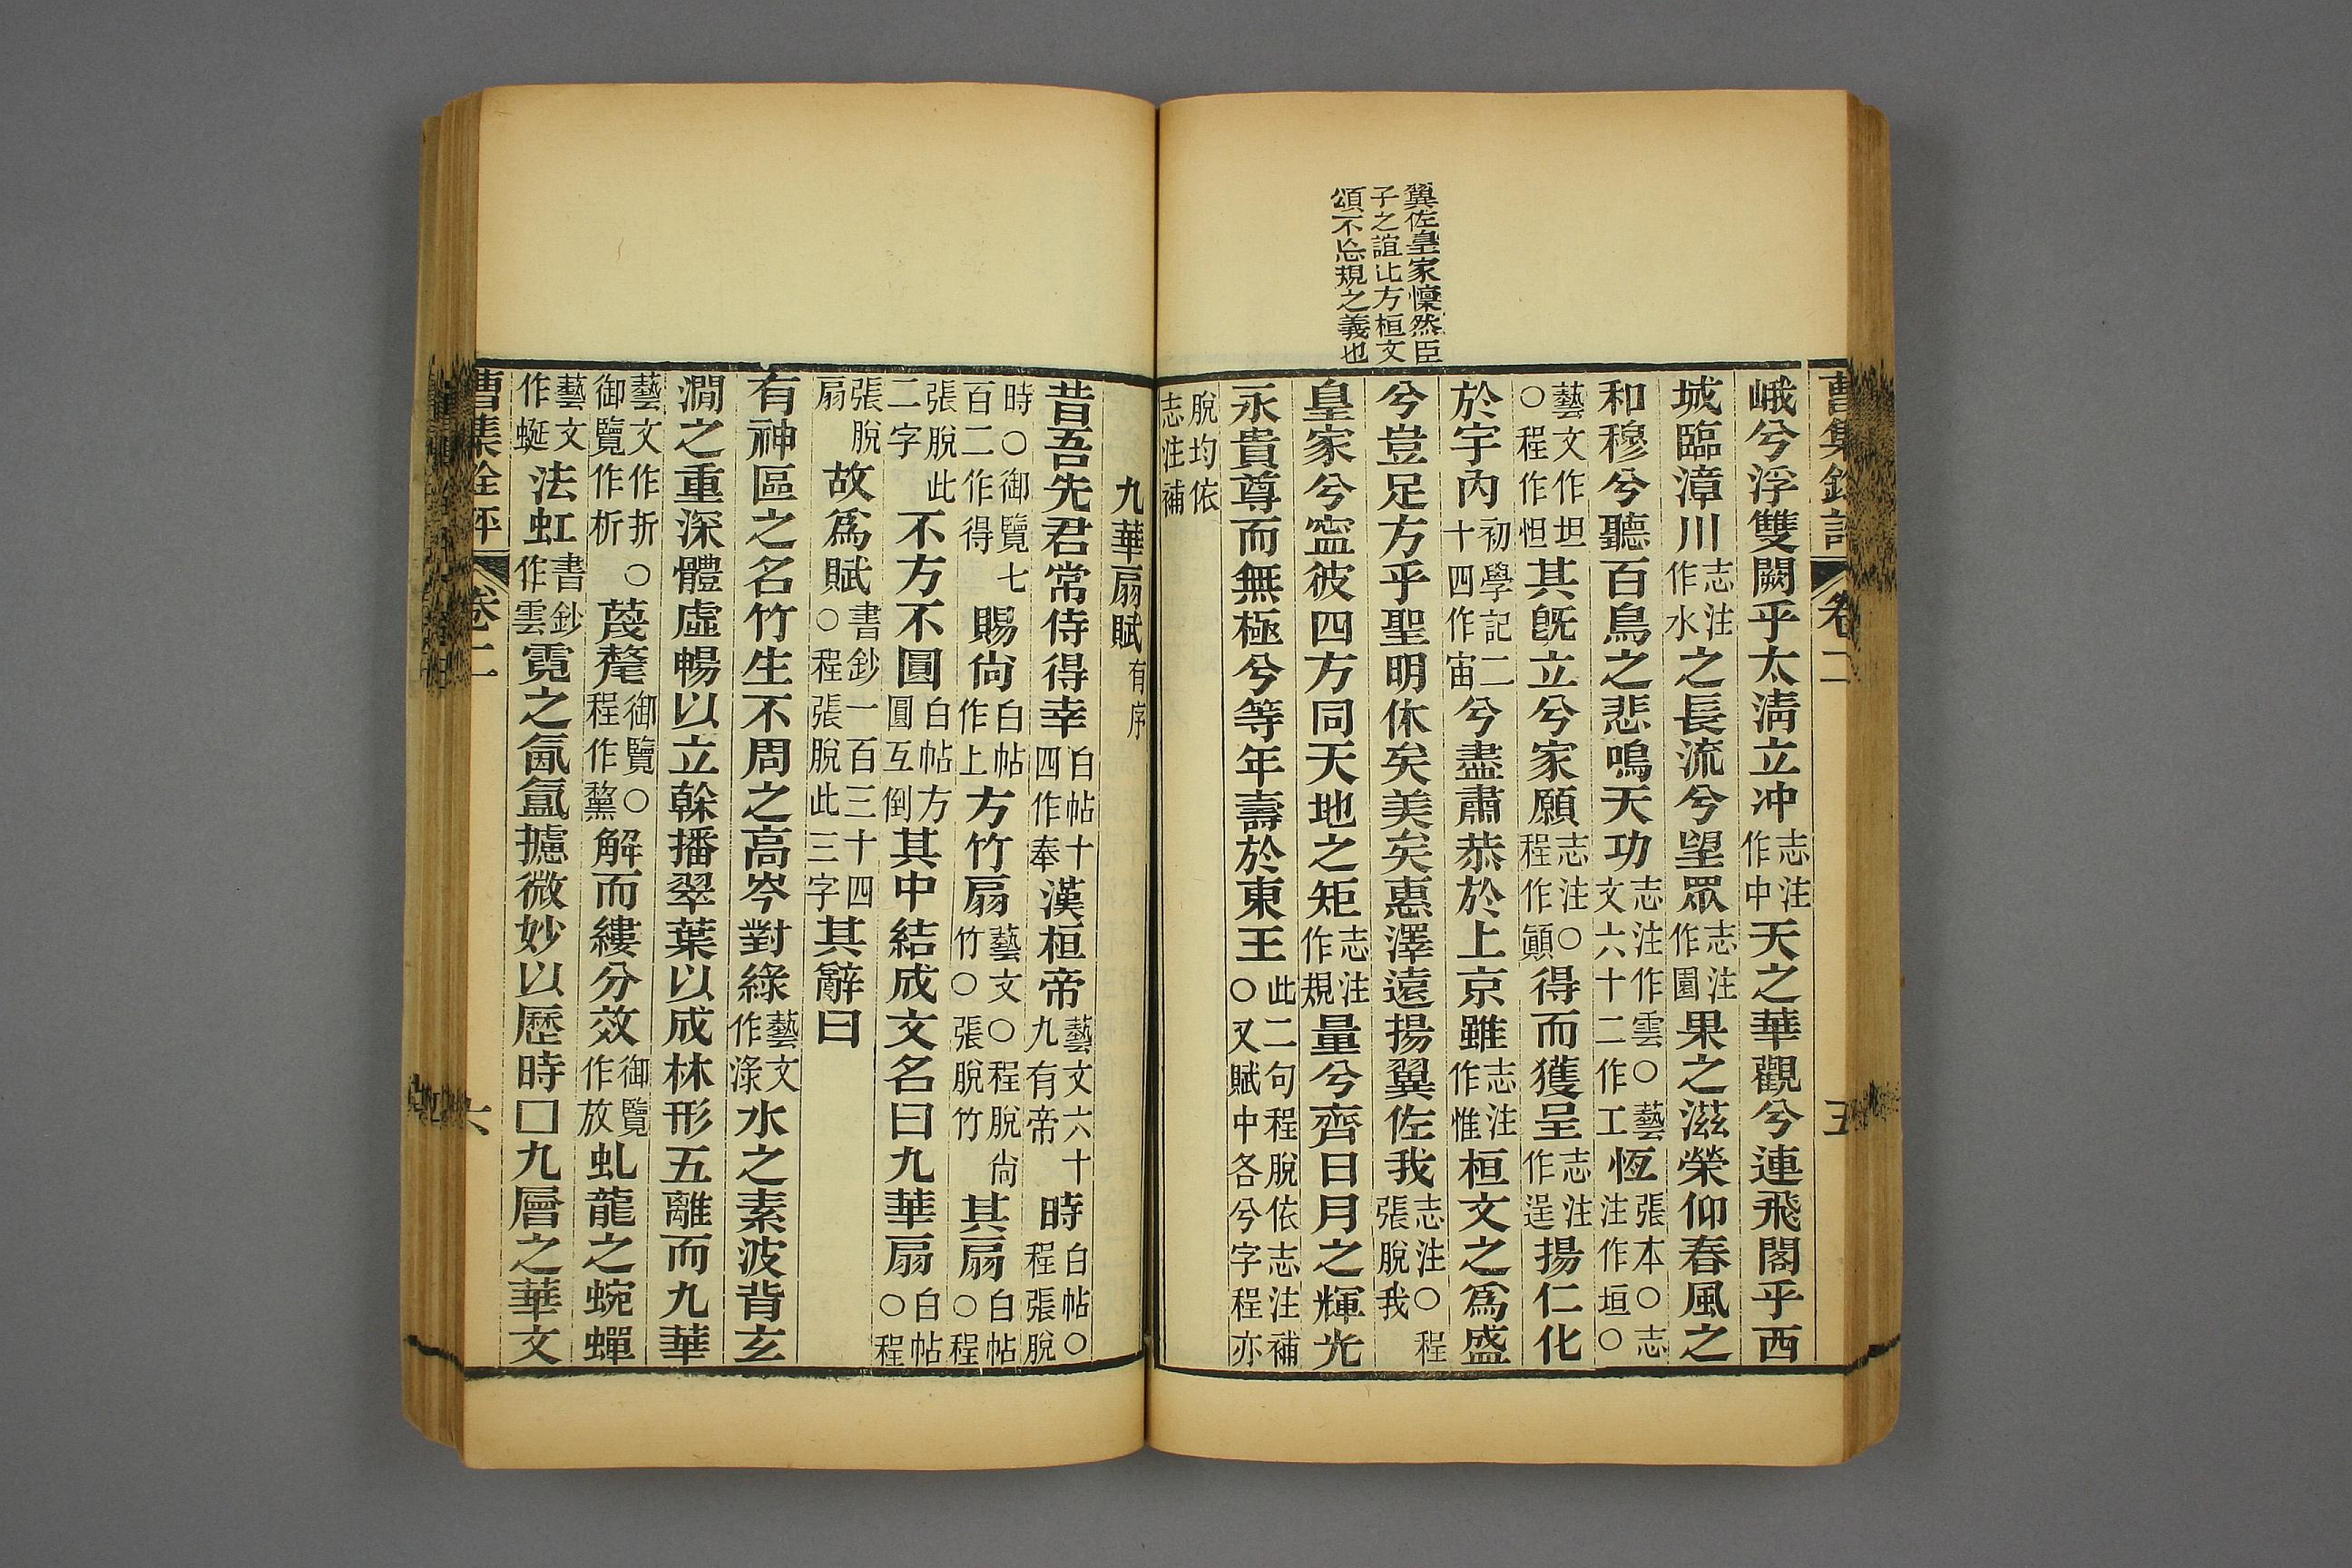 曹集銓評 卷二 五
翼佐皇家懍然臣
子之誼比方桓文
頌不忘規之義也
峨兮浮雙闕乎太淸立冲志注作中天之華觀兮連飛閣乎西
城臨漳川志注作水之長流兮朢眾志注作園果之滋榮仰春風之
和穆兮聽百鳥之悲鳴天功志注作雲○藝文六十二作工恆張本○志注作垣○
藝文作坦○程作怛其旣立兮家願志注○程作顚得而獲呈志注作逞揚仁化
於宇內初學記二十四作宙兮盡肅恭於上京雖志注作惟桓文之爲盛
兮豈足方乎聖明休矣美矣惠澤遠揚翼佐我志注○程張脫我
皇家兮寍彼四方同天地之矩志注作規量兮齊日月之輝光
永貴尊而無極兮等年壽於東王此二句程脫依志注補○又賦中各兮字程亦
脫均依志注補
九華扇賦有序
昔吾先君常侍得幸白帖十四作奉漢桓帝藝文六十九有帝時白帖○程張脫
時○御覽七百二作得賜尙白帖作上方竹扇藝文○程脫尙竹○張脫竹其扇白帖○程
張脫此二字不方不圓白帖方圓互倒其中結成文名曰九華扇白帖○程
張脫扇故爲賦書鈔一百三十四○程張脫此三字其辭曰
有神區之名竹生不周之高岑對綠藝文作淥水之素波背玄
澗之重深體虛暢以立榦播翠葉以成林形五離而九華
藝文作折○御覽作析蔑氂御覽○程作氂解而縷分效御覽作放虬龍之蜿蟬
藝文作蜒法虹書鈔作雲霓之氤氳攄微妙以歷時□九層之華文
曹集銓評 卷二 六